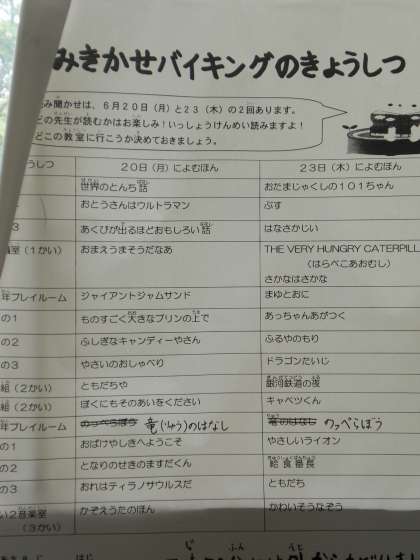 みきかせバイキングのきょうしつ
み聞かせは、6月20日(月)と23(木)の2回あります。
どの先生が読むかはお楽しみ!いっしょうけんめい読みますよ!
どこの教室に行こうか決めておきましょう。
しつ 20日(月)によむほん 23日(木)によむほん
世界のとんち話 おたまじゃくしの101ちゃん
おとうさんはウルトラマン ぶす
3 あくびが出るほどおもしろい話 はなさかじい
室(1かい) おまえうまそうだなあ THE VERY HUNGRY CATERPILL
(はらぺこあおむし)
さかなはさかな
年プレイルーム ジャイアントジャムサンド まゆとおに
の1 ものすごく大きなプリンの上で あっちゃんあがつく
の2 ふしぎなキャンディーやさん ふるやのもり
の3 やさいのおしゃべり ドラゴンたいじ
組(2かい) ともだちや 銀河鉄道の夜
組(2かい) ぼくにもそのあいをください キャベツくん
年プレイルーム のっぺらぼう 竜(りゅう)のはなし 竜のはなし のっぺらぼう
の1 おばけやしきへようこそ やさしいライオン
の2 となりのせきのますだくん 給食番長
の3 おれはティラノサウルスだ ともだち
い2音楽室 かぞえうたのほん かわいそうなぞう
(3かい)